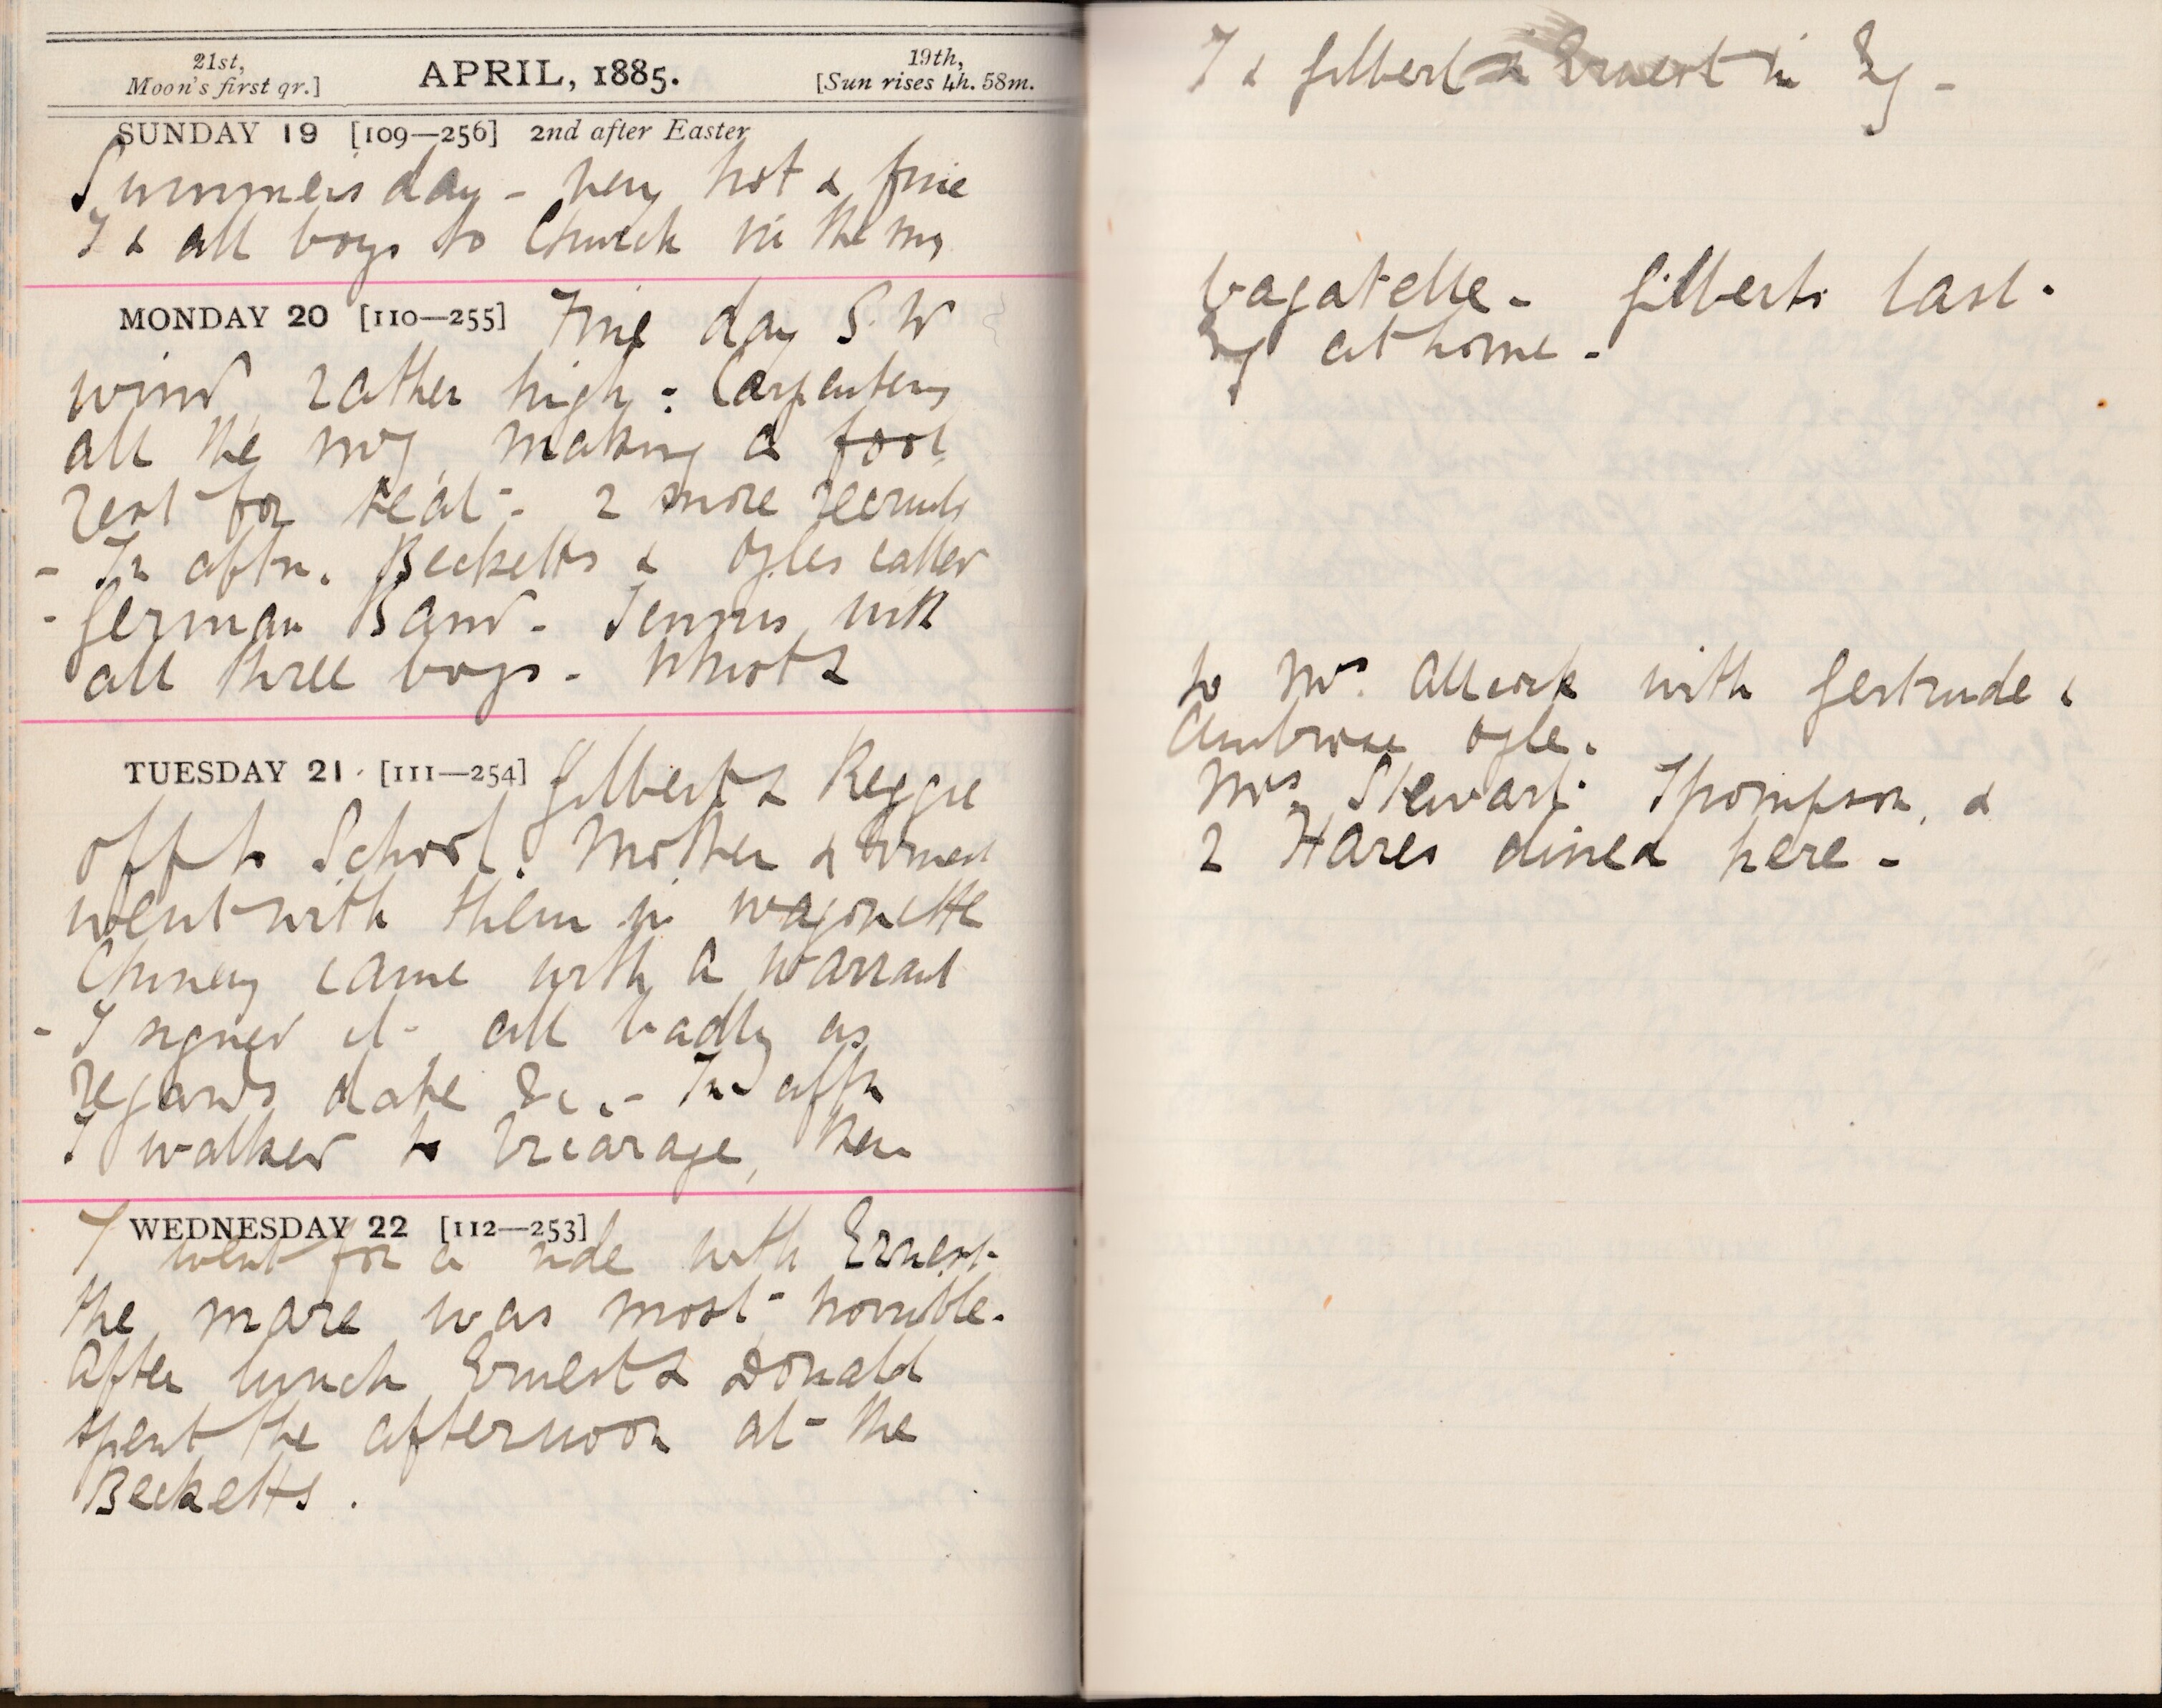 21st,
Moon's first qr.]
APRIL, 1885.
19th,
[Sun rises 4h. 58m.
SUNDAY 19 [109—256] 2nd after Easter
Summers day - very hot & fine
I & all boys to Church in the mg
MONDAY 20 [110—255] Fine day S.W
wind rather high - Carpentery
all the mg, making a foot
rest for seat - 2 more recruits
- In aftn. Becketts & Ogles called
- German Band - Tennis with
all three boys - Whist &
TUESDAY 21 [111—254] Gilbert & Reggie
off to School. Mother & Ernest
went with them in wagonette
came with a warrant
- I signed it - all badly as
regards date &c. - In aftn
I walked to Vicarage, then
WEDNESDAY 22 [112—253]
I went for a ride with Ernest
the mare was most horrible.
After lunch Ernest & Donald
spent the afternoon at the
Becketts.
I & Gilbert & Ernest in Eg -
bagatelle - Gilberts last
Eg at home -
to Mrs. with Gertrude &
Ambrose Ogle.
Mrs. Stewart Thompson, &
2 Hares dined here -